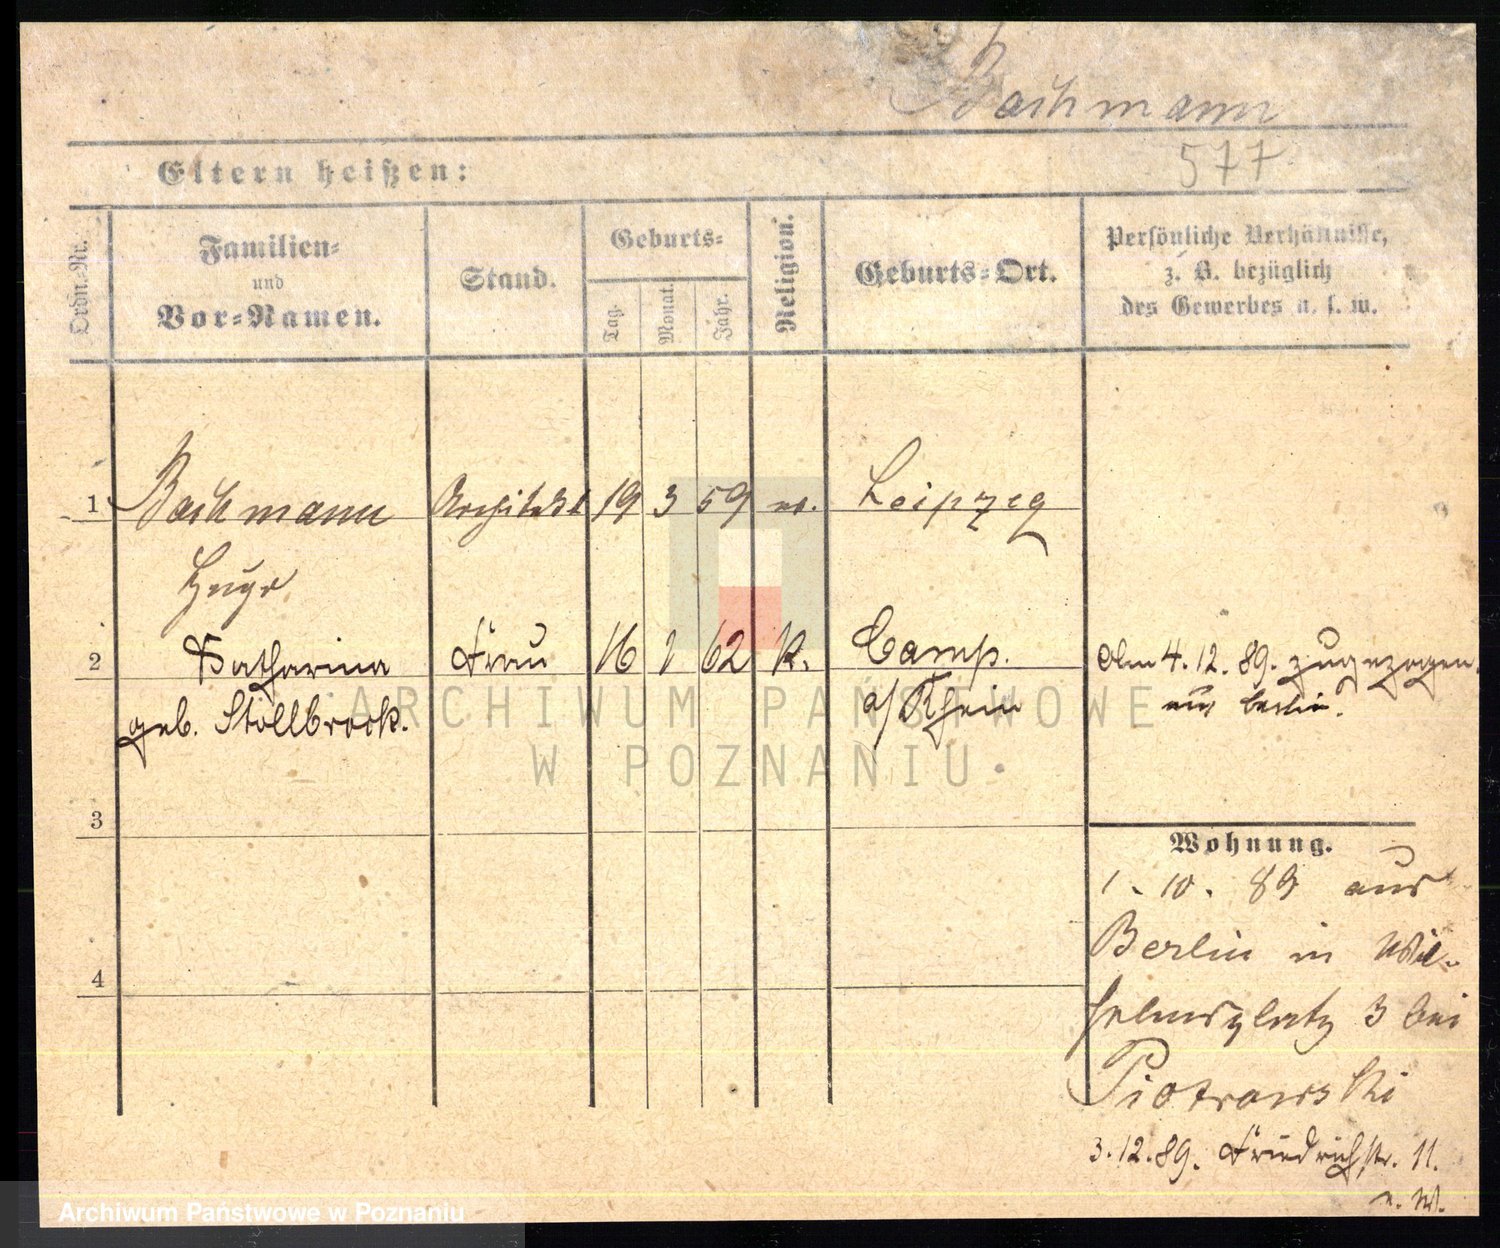 Bachmann
577
Eltern heißen:
Ordn.-Nr.
Familien-
und
Vor-Namen.
Stand.
Geburts-
Tag.
Monat.
Jahr.
Religion.
Geburts-Ort.
Persönliche Verhältnisse,
z. B. bezüglich
des Gewerbes u. s. w.
1 Bachmann Architekt 19 3 59 ev. Leipzig
Hugo
2 Katharina Frau 16 1 62 k. Camp. Am 4.12.89. zugezogen
geb. Stollbrock. a/Rhein aus Berlin.
ARCHIWUM PAŃSTWOWE
W POZNANIU
3
Wohnung.
1. 10. 89 aus
Berlin in Wil-
4
helmsplatz 3 bei
Piotrowski
3.12.89. Friedrichstr. 11.
Archiwum Państwowe w Poznaniu